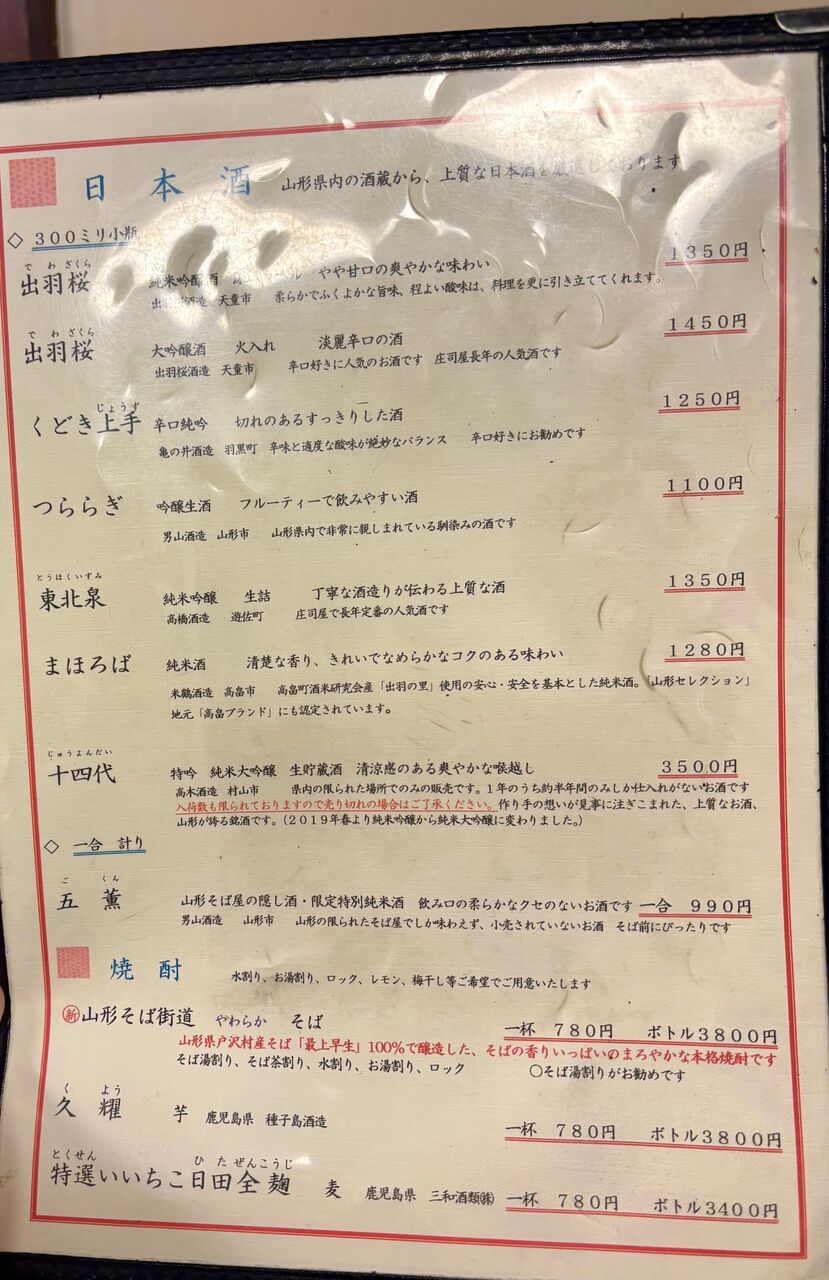 日本酒 山形県内の酒蔵から、上質な日本酒を厳選しております
◇ 300ミリ小瓶
でわざくら
出羽桜 純米吟醸酒 やや甘口の爽やかな味わい 1350円
出羽桜酒造 天童市 柔らかでふくよかな旨味、程よい酸味は、料理を更に引き立ててくれます。
でわざくら
出羽桜 大吟醸酒 火入れ 淡麗辛口の酒 1450円
出羽桜酒造 天童市 辛口好きに人気のお酒です 庄司屋長年の人気酒です
じょうず
くどき上手 辛口純吟 切れのあるすっきりした酒 1250円
亀の井酒造 羽黒町 辛味と適度な酸味が絶妙なバランス 辛口好きにお勧めです
つららぎ 吟醸生酒 フルーティーで飲みやすい酒 1100円
男山酒造 山形市 山形県内で非常に親しまれている馴染みの酒です
とうほくいずみ
東北泉 純米吟醸 生詰 丁寧な酒造りが伝わる上質な酒 1350円
高橋酒造 遊佐町 庄司屋で長年定番の人気酒です
まほろば 純米酒 清楚な香り、きれいでなめらかなコクのある味わい 1280円
米鶴酒造 高畠市 高畠町酒米研究会産「出羽の里」使用の安心・安全を基本とした純米酒。「山形セレクション」
地元「高畠ブランド」にも認定されています。
じゅうよんだい
十四代 特吟 純米大吟醸 生貯蔵酒 清涼感のある爽やかな喉越し 3500円
高木酒造 村山市 県内の限られた場所でのみの販売です。1年のうち約半年間のみしか仕入れがないお酒です
入荷数も限られておりますので売り切れの場合はご了承ください。作り手の想いが見事に注ぎこまれた、上質なお酒、
山形が誇る銘酒です。（2019年春より純米吟醸から純米大吟醸に変わりました。）
◇ 一合 計り
ごくん
五薫 山形そば屋の隠し酒・限定特別純米酒 飲み口の柔らかなクセのないお酒です 一合 990円
男山酒造 山形市 山形の限られたそば屋でしか味わえず、小売されていないお酒 そば前にぴったりです
焼酎 水割り、お湯割り、ロック、レモン、梅干し等ご希望でご用意いたします
㊟新 山形そば街道 やわらか そば 一杯 780円 ボトル3800円
山形県戸沢村産そば「最上早生」100%で醸造した、そばの香りいっぱいのまろやかな本格焼酎です
そば湯割り、そば茶割り、水割り、お湯割り、ロック ○そば湯割りがお勧めです
くよう
久耀 芋 鹿児島県 種子島酒造 一杯 780円 ボトル3800円
とくせん ひたぜんこうじ
特選いいちこ日田全麹 麦 鹿児島県 三和酒類㈱ 一杯 780円 ボトル3400円